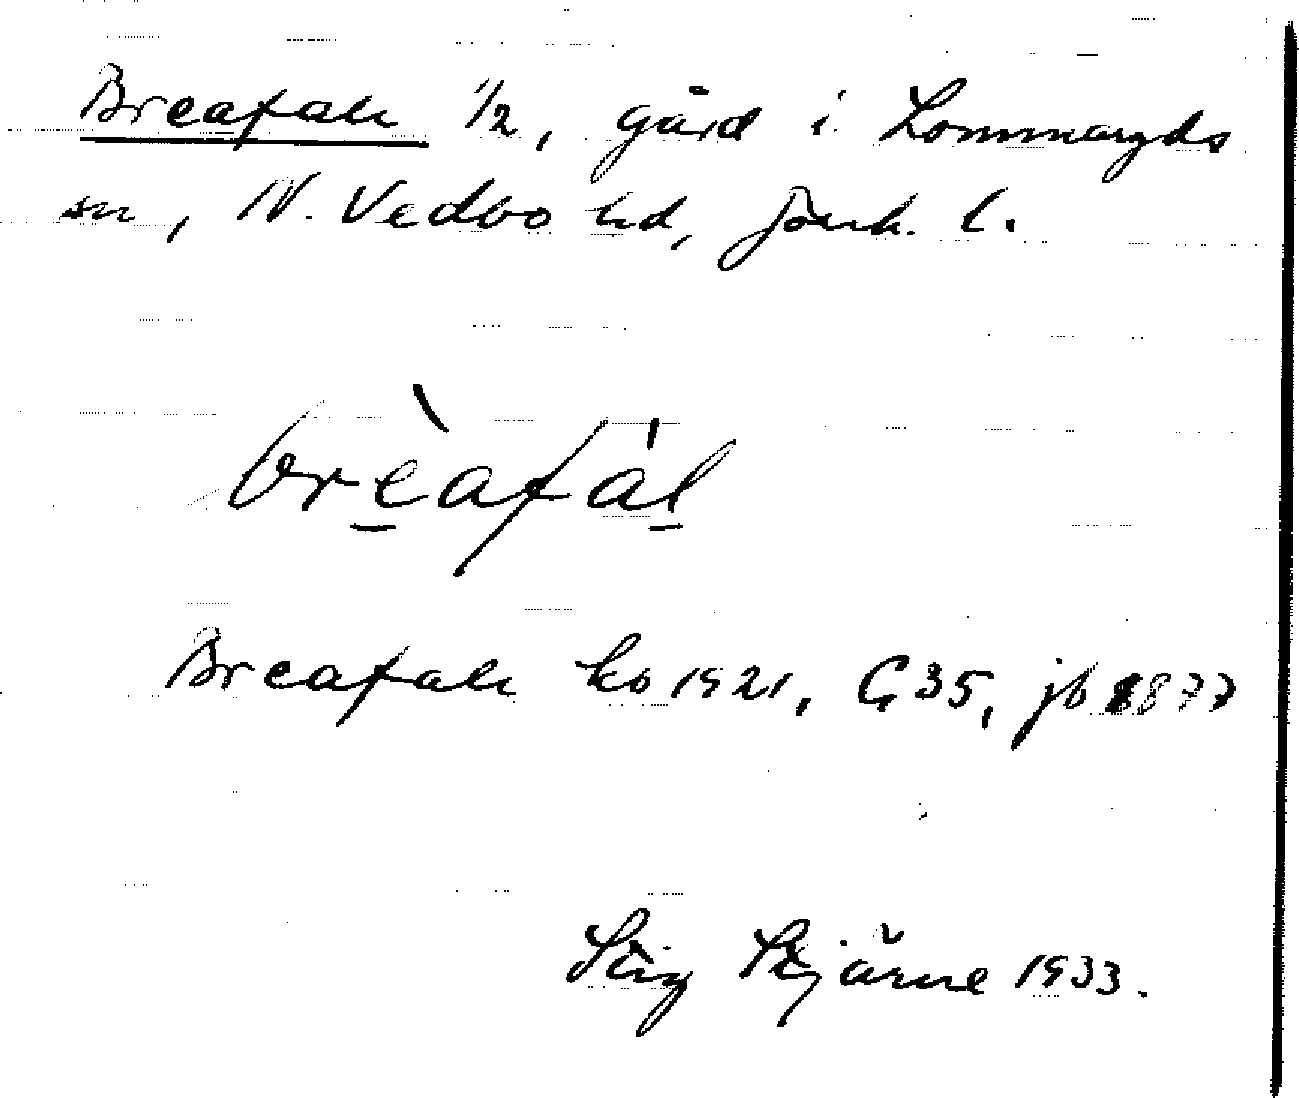 Breafall 1/2, gård i Lommaryds
sn, N. Vedbo hd, Jönk. l.
brèafál
Breafall ko 1921, G 35, jb 1877
Stig Stjärne 1933.